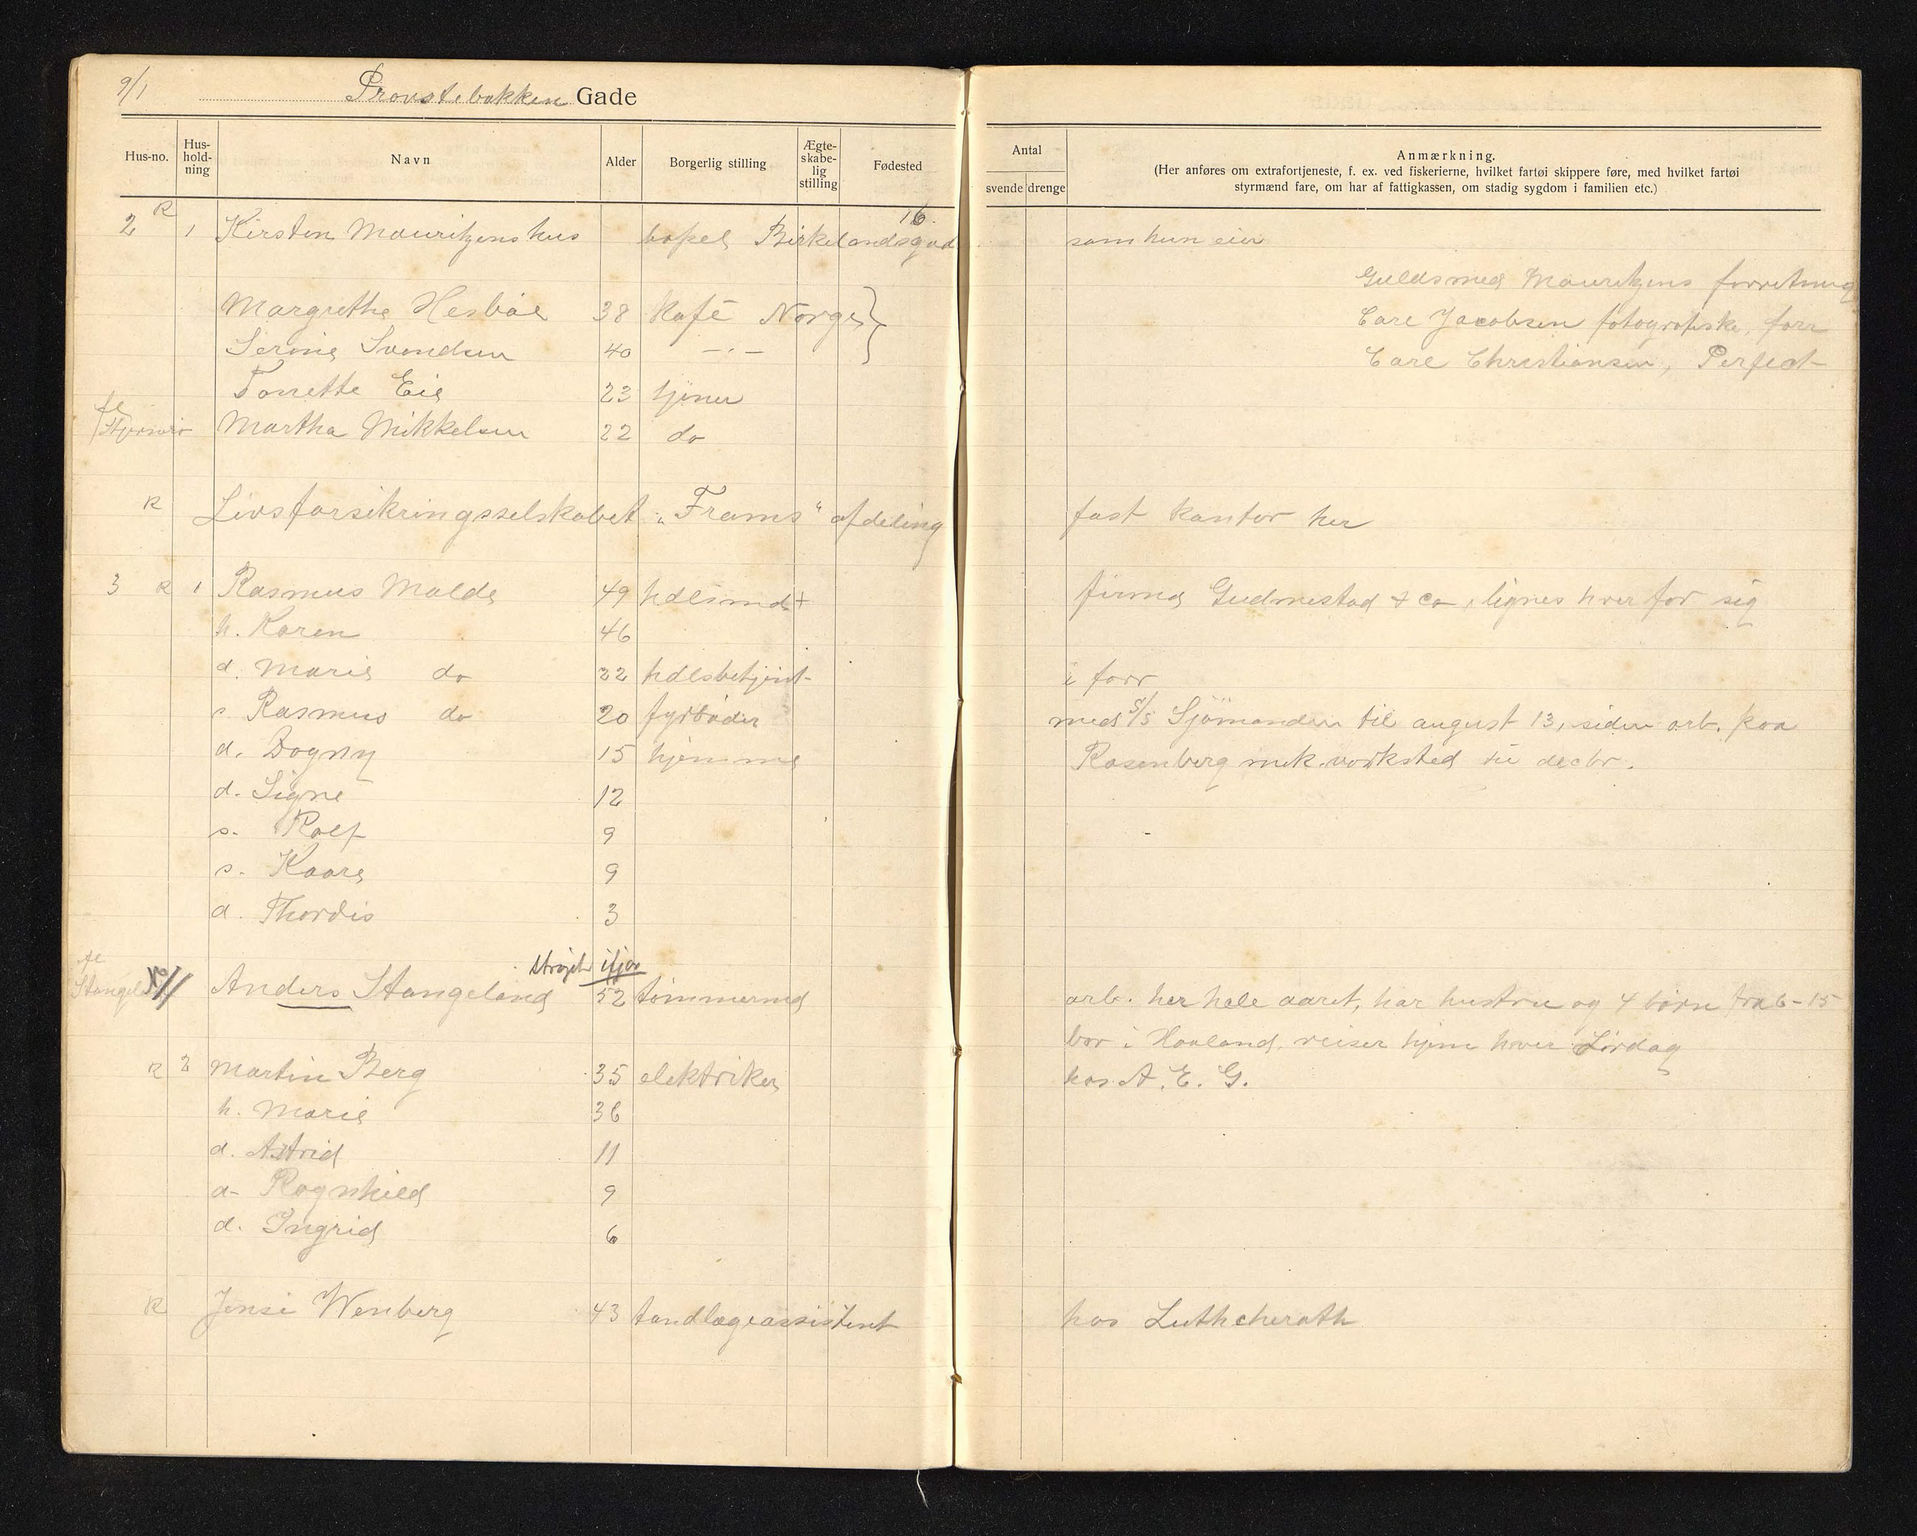 9/1 Provstebakken Gade
Hus-no. Hus-hold-ning Navn Alder Borgerlig stilling Ægte-skabe-lig stilling Fødested Antal svende drenge Anmærkning.
(Her anføres om extrafortjeneste, f. ex. ved fiskerierne, hvilket fartøi skippere føre, med hvilket fartøi
styrmænd fare, om har af fattigkassen, om stadig sygdom i familien etc.)
2 R 1 Kirsten Mauritzens hus bopel Birkelandsgad 16. som hun eier
Guldsmed Mauritzens forretning
Margrethe Hesbøe 38 Kafé Norge } Carl Jacobsen fotografiske, forr
Serine Svendsen 40 -"- Carl Christiansen, Perfect
Tonette Eie 23 tjener
Martha Mikkelsen 22 do
R Livsforsikringsselskabet "Frams" afdeling fast kontor her
3 R 1 Rasmus Malde 49 hdlsmd + firma Gudmestad & co, lignes hver for sig
h. Karen 46
d. Marie do 22 hdlsbetjent i forr
s. Rasmus do 20 fyrbøder med S/S Sjømanden til august 13, siden arb. paa
d. Dagny 15 hjemme Rosenberg mek. verksted til decbr.
d. Signe 12
s. Rolf 9
s. Kaare 9
d. Thordis 3
strøget ifjor
Anders Stangeland 52 tømmermd arb. her hele aaret, har hustru og 4 børn fra 6-15
bor i Haaland, reiser hjem hver Lørdag
R 2 Martin Berg 35 elektriker hos A. E. G.
h. Marie 36
d. Astrid 11
d. Ragnhild 9
d. Ingrid 6
R Jensi Wenberg 43 tandlægeassistent hos Luthcherath